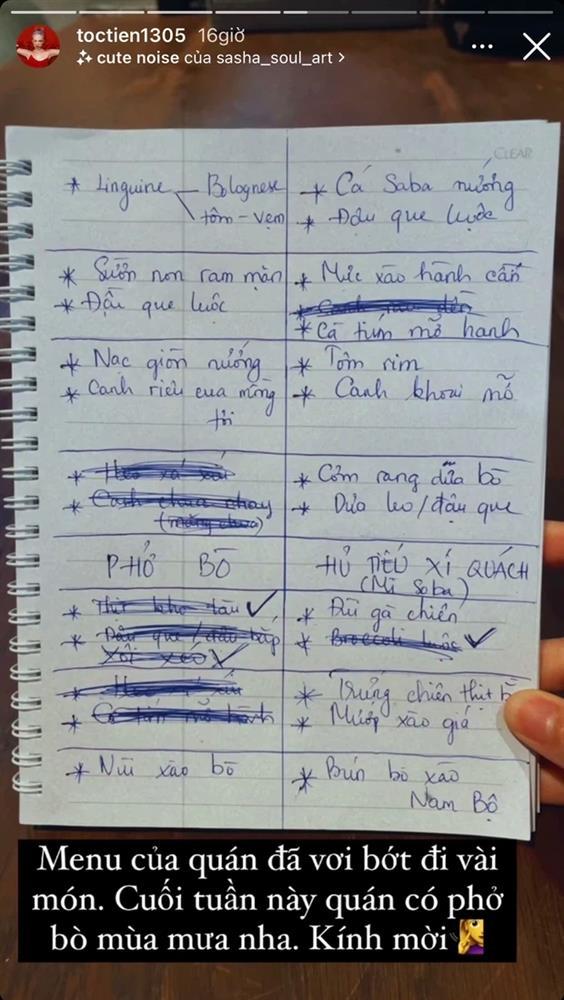 toctien1305 16giờ
cute noise của sasha_soul_art >
CLEAR
* Linguine — Bolognese
tôm - vẹm
* Cá Saba nướng
* Đậu que luộc
* Sườn non ram mặn
* Đậu que luộc
* Mực xào hành cần
* Cà tím mỡ hành
* Nạc giòn nướng
* Canh riêu cua mồng
tơi
* Tôm rim
* Canh khoai mỡ
* Canh chua chay
* Cơm rang dưa bò
* Dưa leo/đậu que
PHỞ BÒ
HỦ TIẾU XÍ QUÁCH
(Mì Soba)
* Thịt kho tàu ✓
* Đậu que / đậu bắp
Xôi xéo ✓
* Đùi gà chiên
* Broccoli luộc ✓
* Cà tím mỡ hành
* Trứng chiên thịt b
* Mướp xào giá
* Nui xào bò
* Bún bò xào
Nam Bộ
Menu của quán đã vơi bớt đi vài
món. Cuối tuần này quán có phở
bò mùa mưa nha. Kính mời